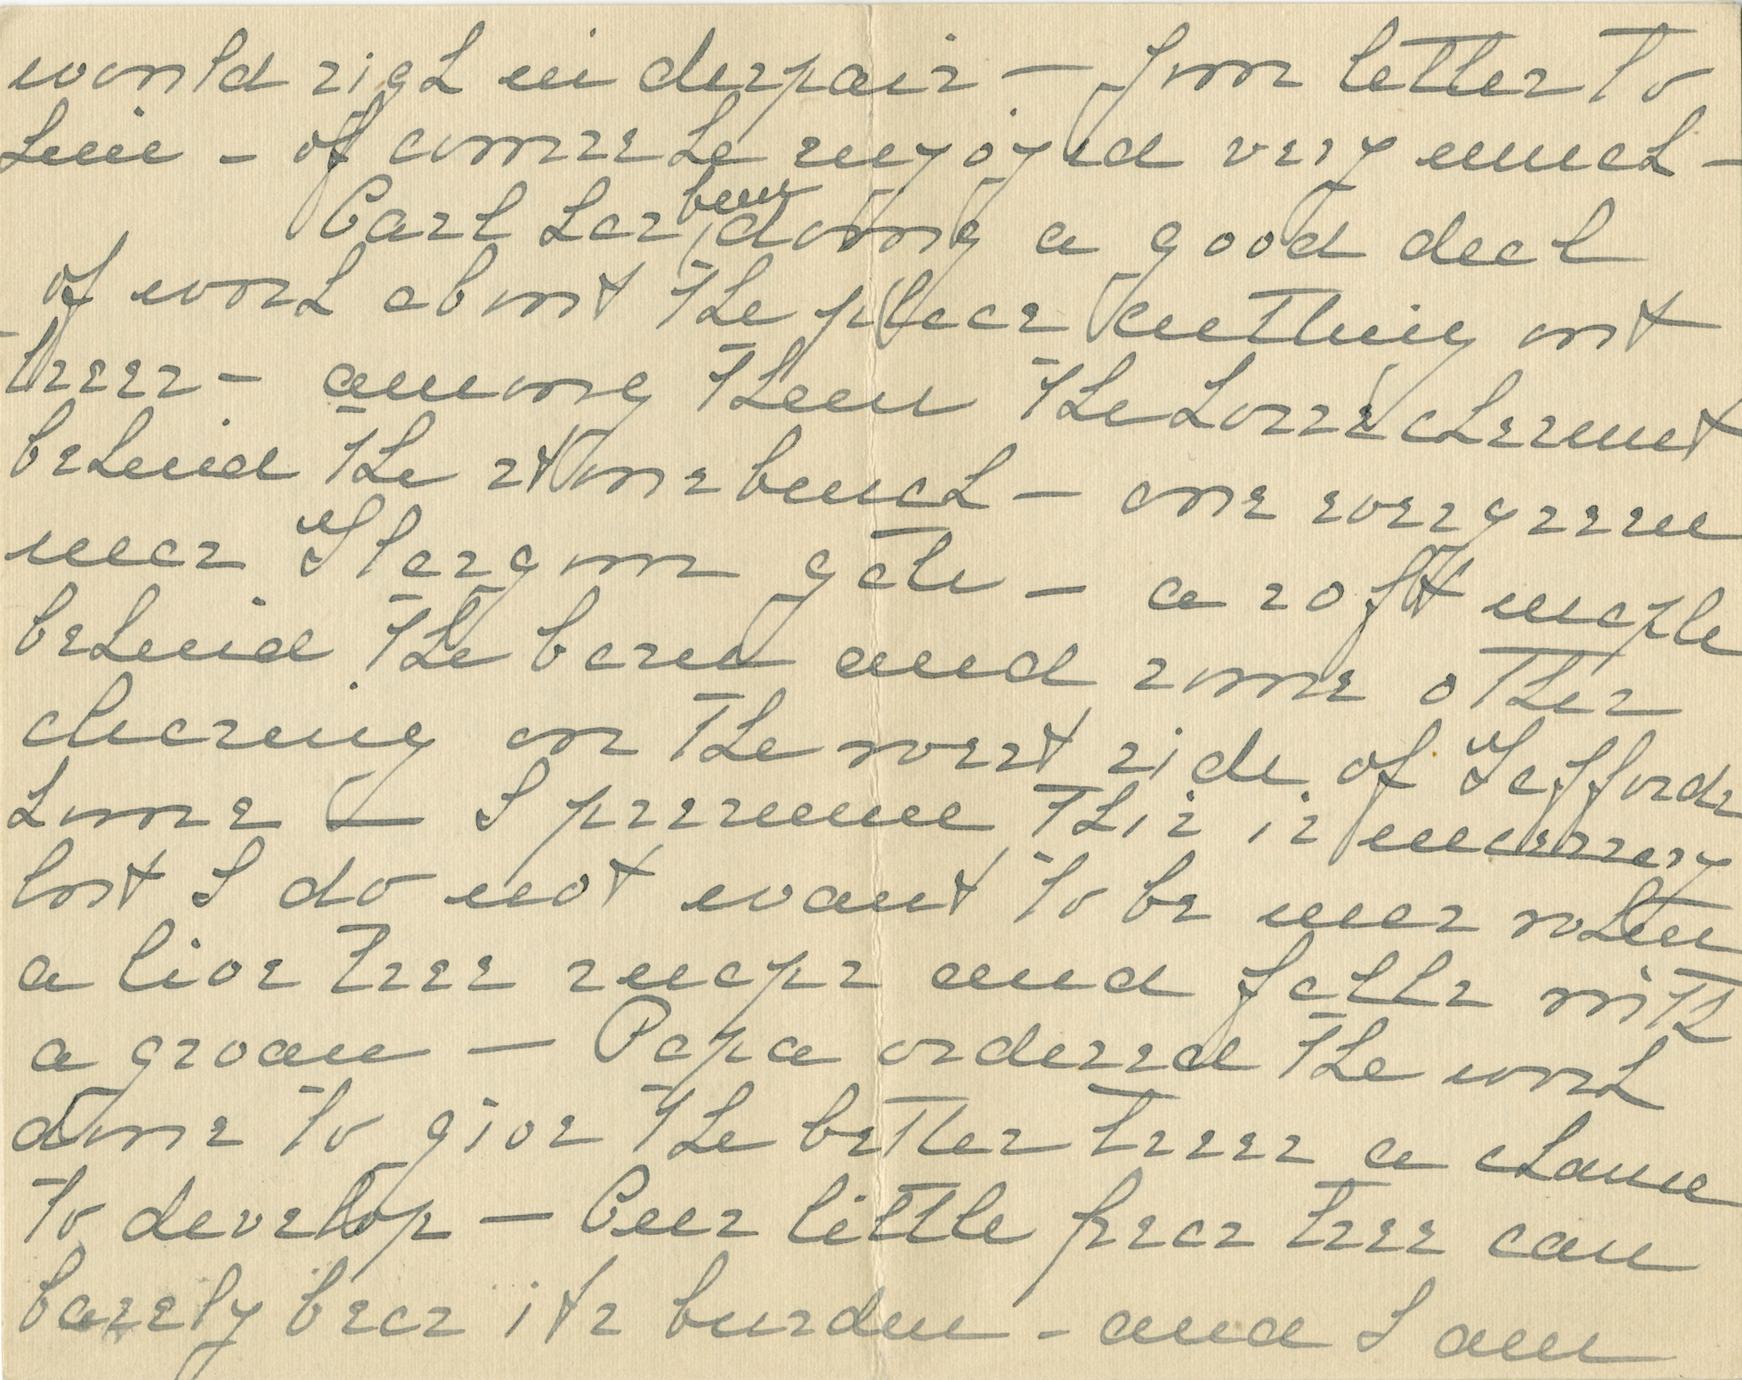 would sigh in despair – Your letter to
him – of course he enjoyed very much –
Carl has been doing a good deal
of work about the place cutting out
trees – among them the horse chestnut
behind the stone bench – one evergreen
near Ferguson gate – a soft maple
behind the barn and some other
clearing on the west side of Jafford's
home – I presume this is necessary
but I do not want to be near when
a live tree snaps and falls with
a groan – Papa ordered the work
done to give the better trees a chance
to develop – Our little pear tree can
barely bear its burden – and I am